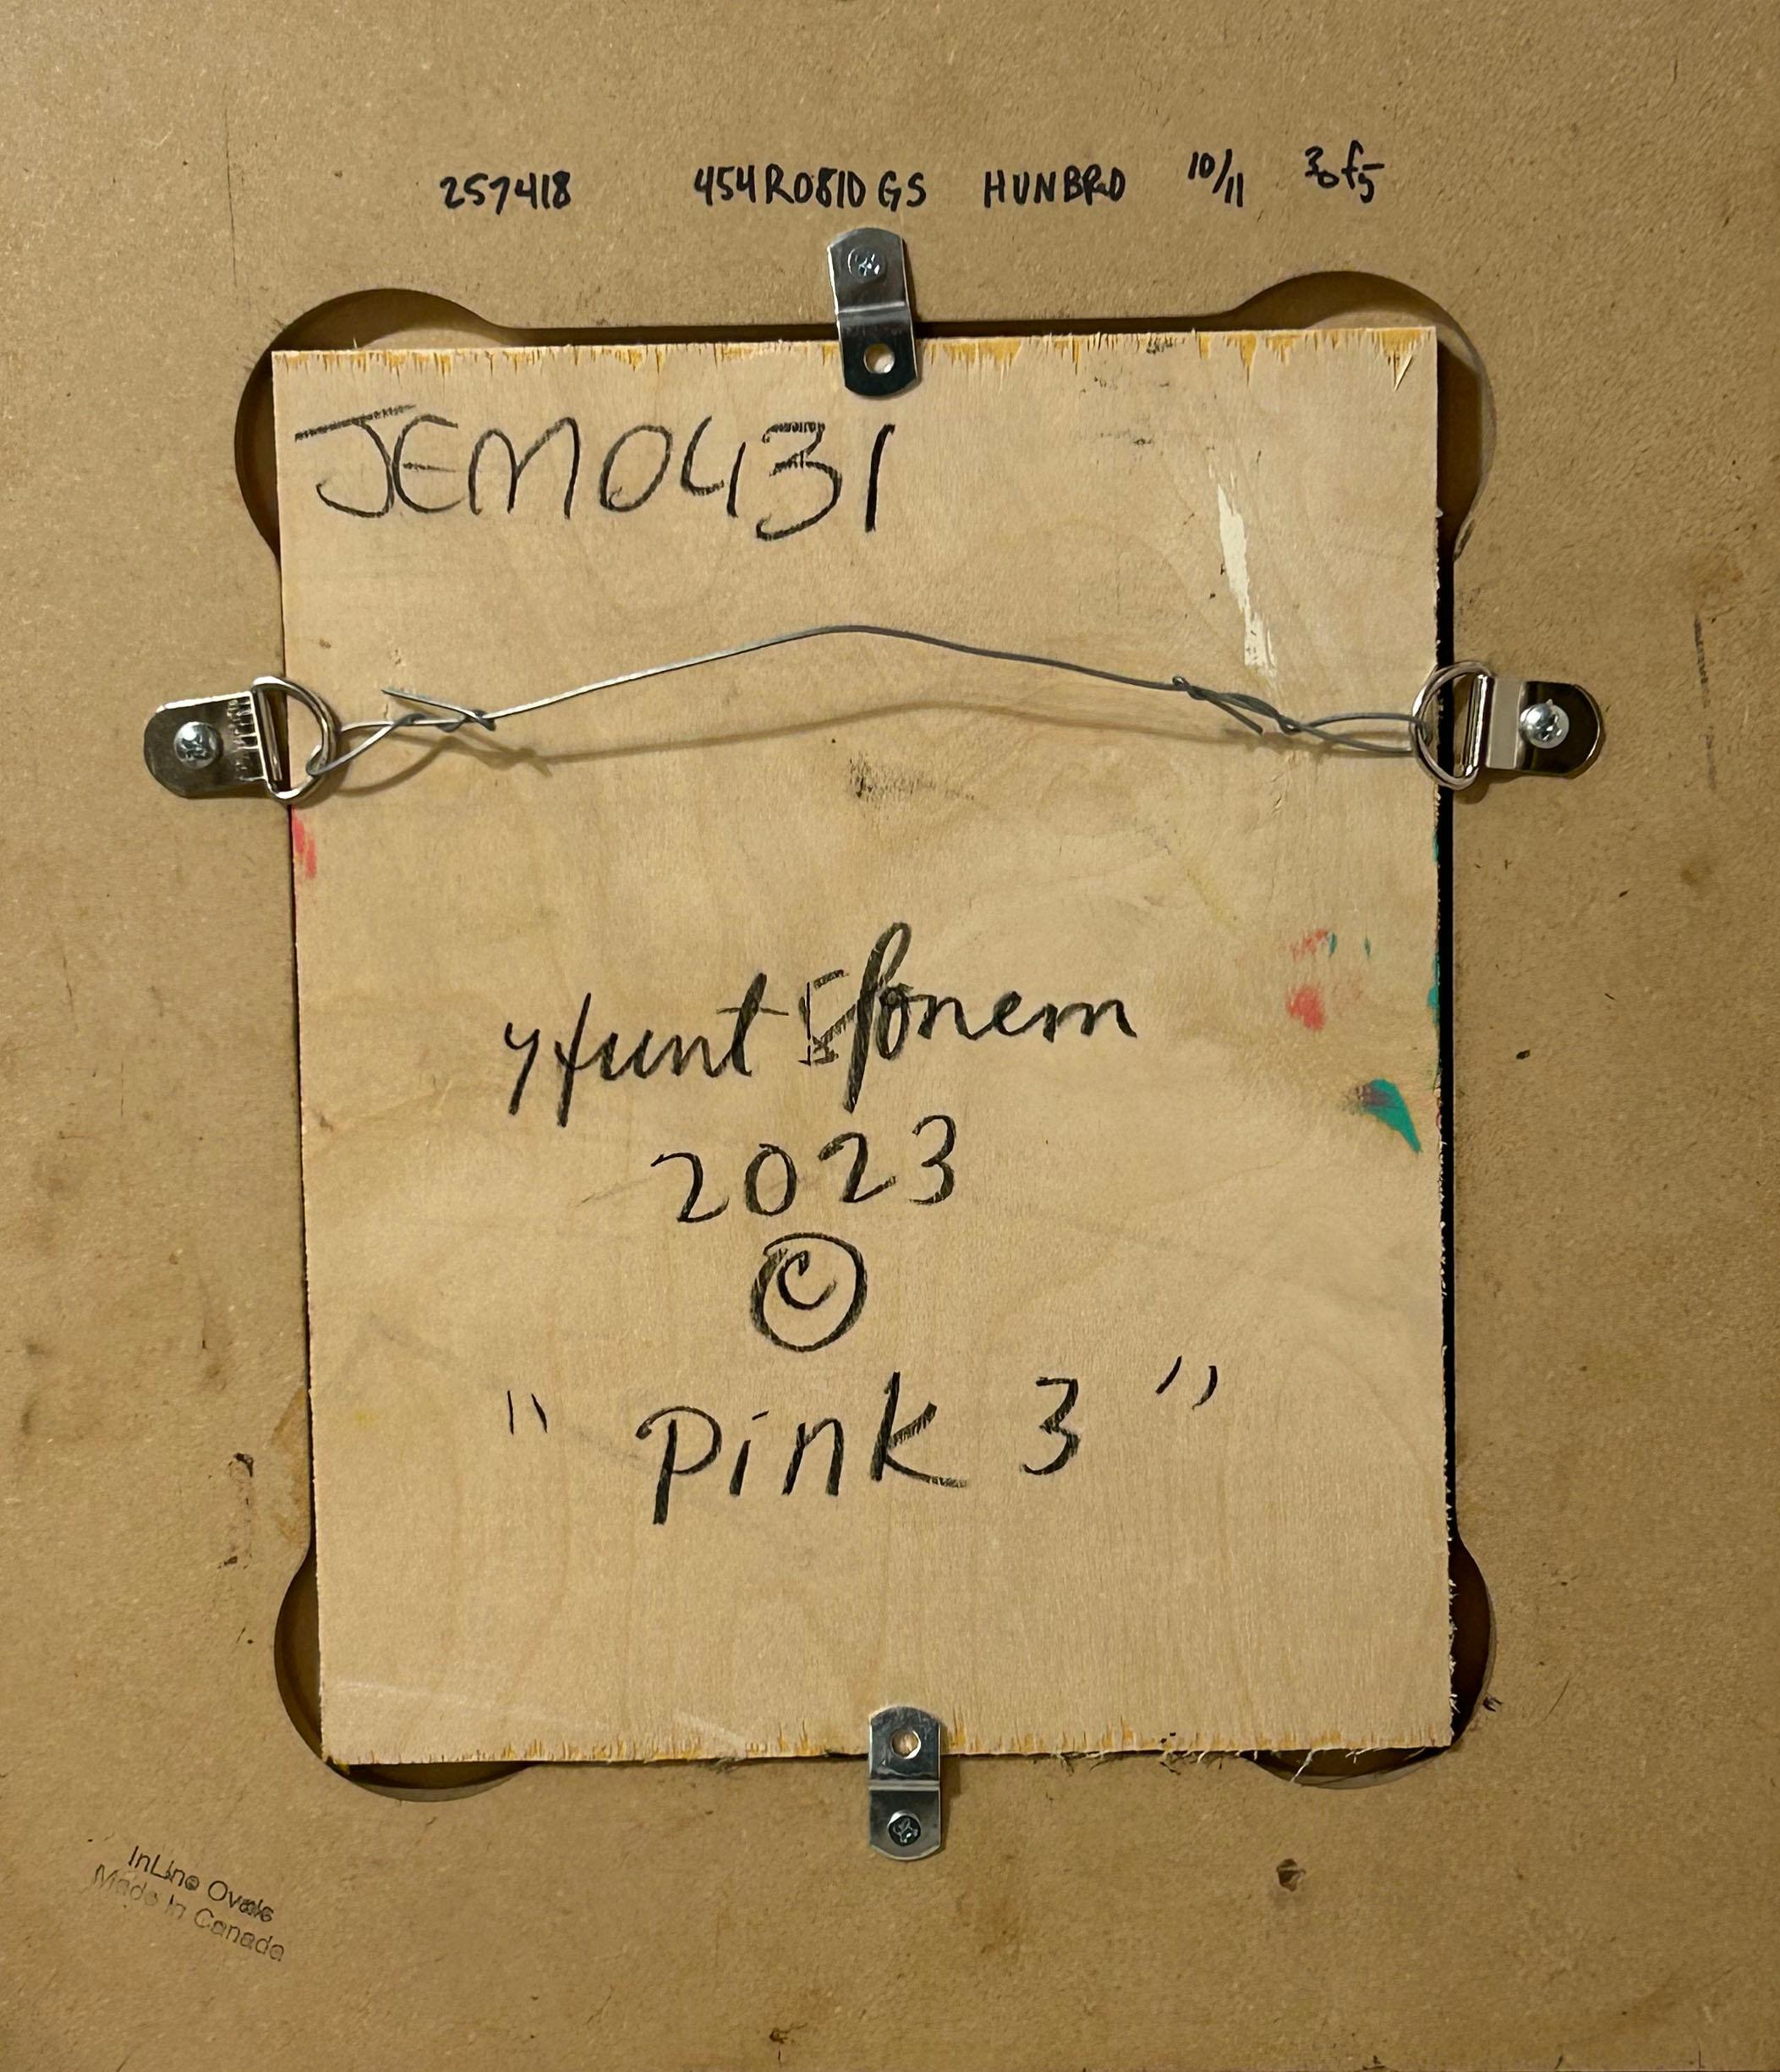 257418 454R0810GS HUNBRD 10/11 3 of 5
JEM0431
Hunt Slonem
2023
©
"Pink 3"
InLine Ovals
Made In Canada